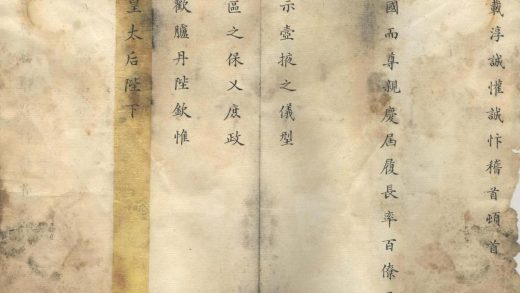 載淳誠懽誠忭稽首頓首
國而尊親慶屆履長率百僚
示壼掖之儀型
區之保乂庶政
歡臚丹陛欽惟
皇太后陛下